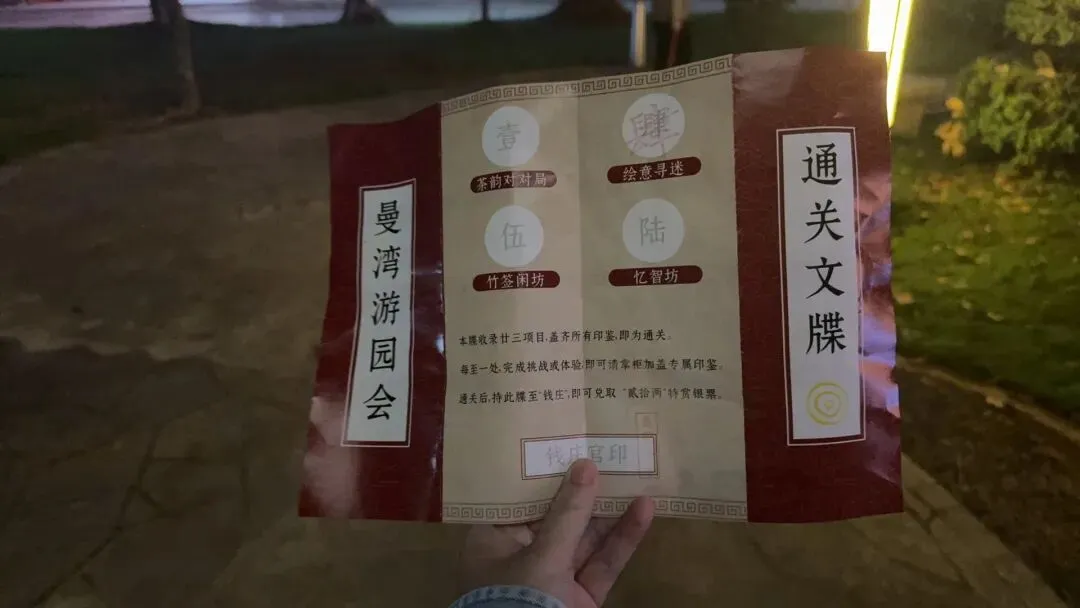 通关文牒
壹
肆
茶韵对对局
绘意寻迷
伍
陆
竹签闲坊
忆智坊
本牒收录廿三项目,盖齐所有印鉴,即为通关。
每至一处,完成挑战或体验,即可请掌柜加盖专属印鉴。
通关后,持此牒至"钱庄",即可兑取 "贰拾两"特赏银票。
钱庄官印
曼湾游园会